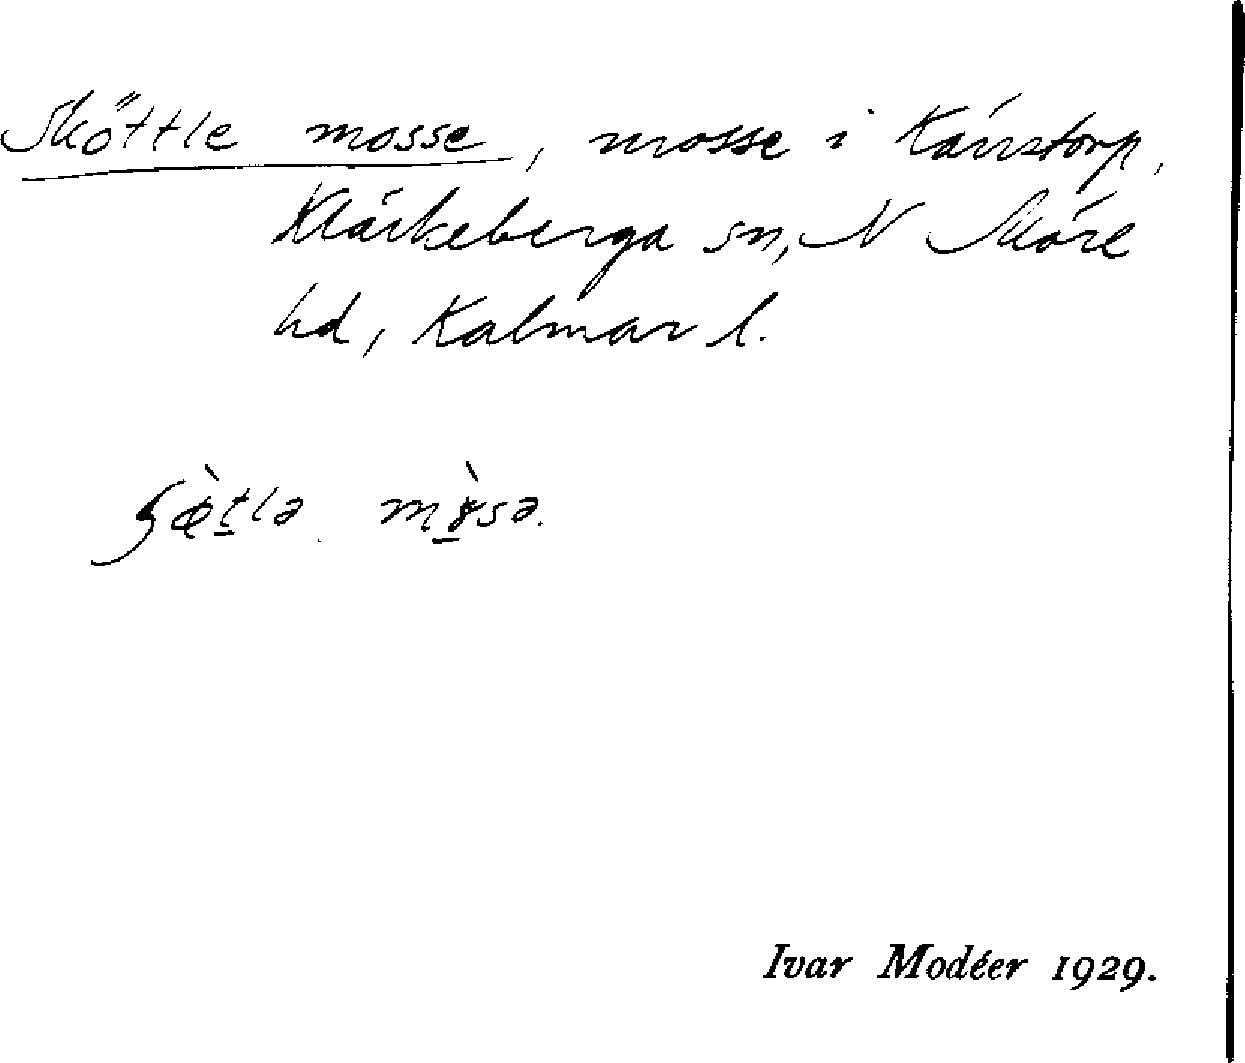 Sköttle mosse, mosse i Kärrstorp,
Kläckeberga sn, N Möre
hd, Kalmar l.
mɤ̀sə.
Ivar Modéer 1929.